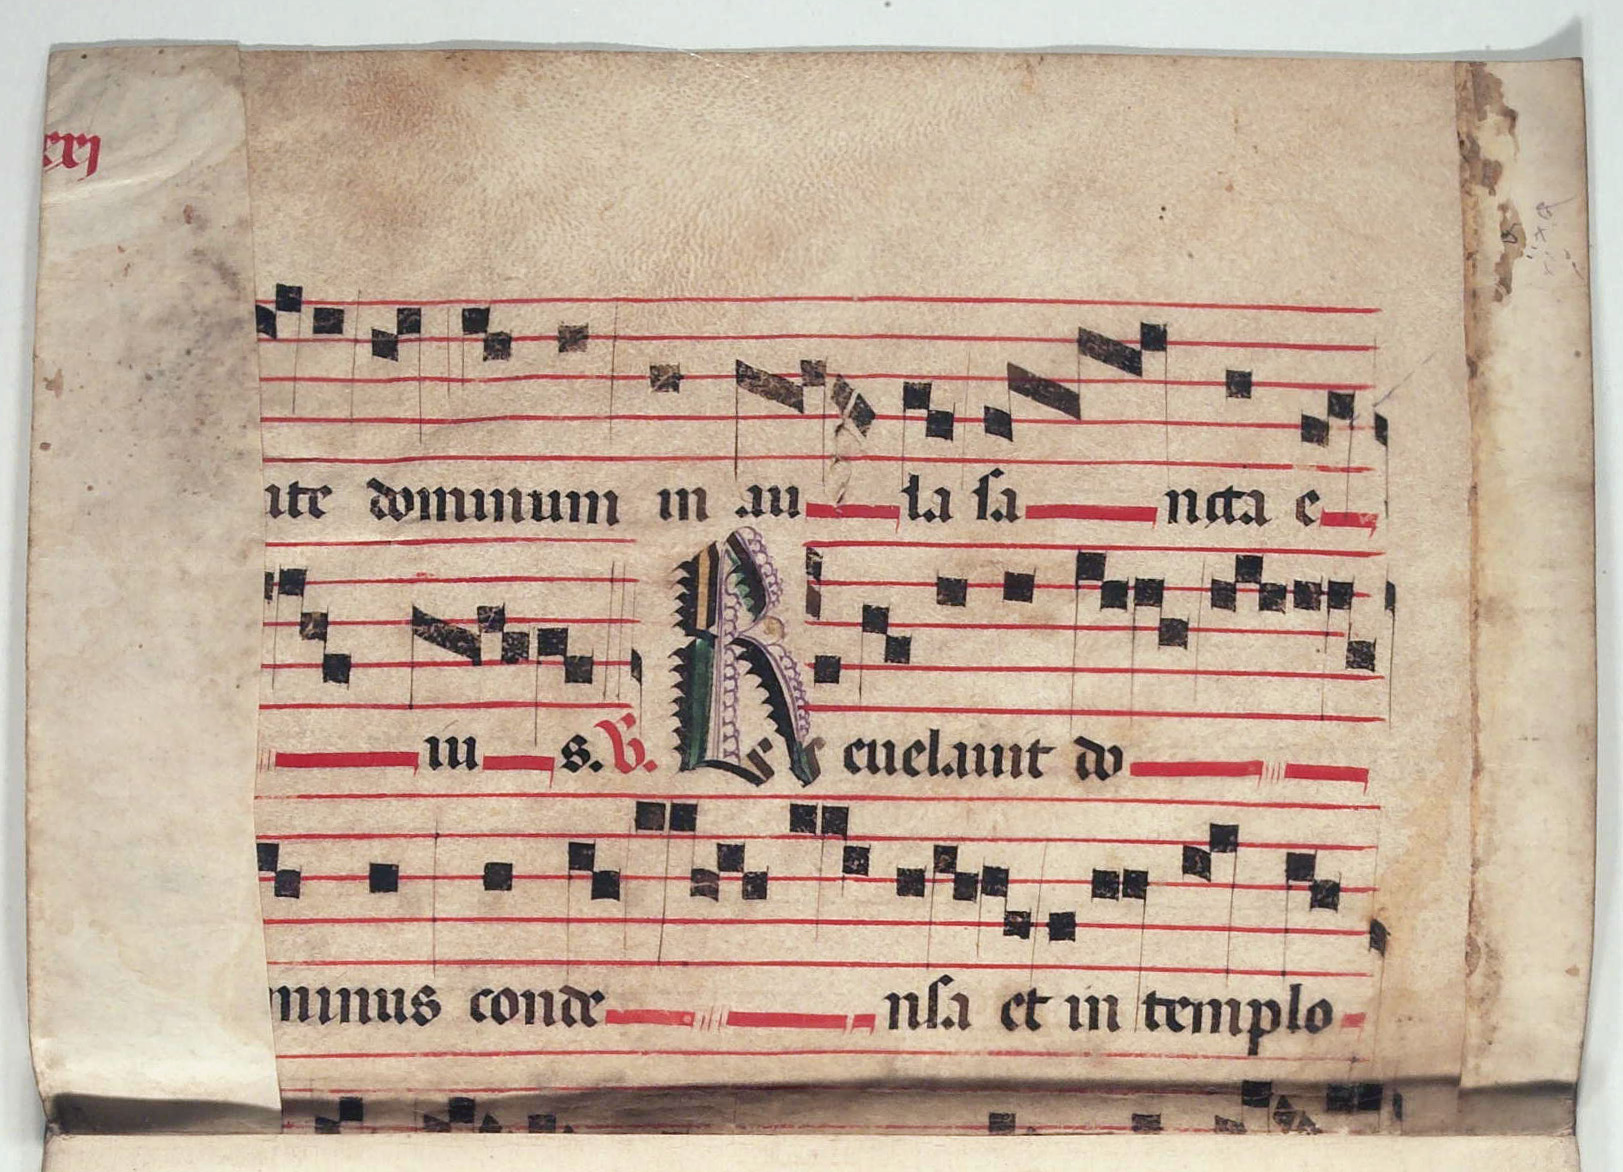 xxj
ite dominum in au la sa ncta e
iu s. V. R euelauit do
minus conde nsa et in templo